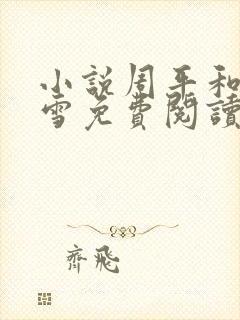 小説周平和
雪免費閱讀
齊飛